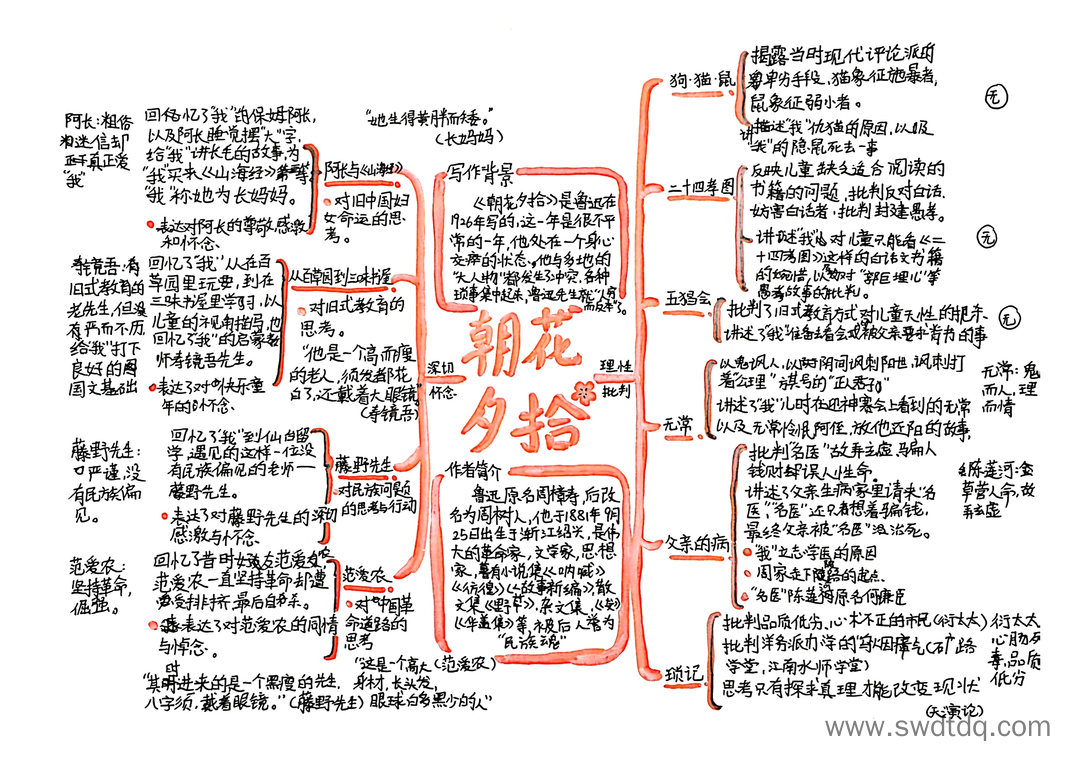 朝花
夕拾
写作背景
《朝花夕拾》是鲁迅在
1926年写的,这一年是很不平
常的一年,他处在一个身心
交瘁的状态。他与多地的
"大人物"都发生了冲突,各种
琐事集中起来,鲁迅先生能"人穷
而反本"了。
作者简介
鲁迅原名周樟寿,后改
名为周树人,他于1881年9月
25日出生于浙江绍兴,是伟
大的革命家,文学家,思想
家,著有小说集《呐喊》
《彷徨》《故事新编》,散
文集《野草》,杂文集,《坟》
《华盖集》等,被后人誉为
"民族魂"
深切
怀念
阿长与《山海经》
回忆了"我"的保姆阿长,
以及阿长睡觉摆"大"字,
给"我"讲长毛的故事,为
"我"买来《山海经》等等,
"我"称她为长妈妈。
表达对阿长的尊敬,感激
和怀念
对旧中国妇
女命运的思
考。
阿长:粗俗
迷信却
真正爱
"我"
"她生得黄胖而矮。"
(长妈妈)
从百草园到三味书屋
回忆了"我"从在百
草园里玩耍,到在
三味书屋里学习,以
儿童的视角描写,也
回忆了"我"的启蒙教
师寿镜吾先生。
表达了对快乐童
年的怀念
对旧式教育的
思考。
寿镜吾:有
旧式教育的
老先生,但没
有严而不厉,
给"我"打下
良好的
国文基础
"他是一个高而瘦
的老人,须发都花
白了,还戴着大眼镜"
(寿镜吾)
藤野先生
回忆了"我"到仙台留
学,遇见的这样一位没
有民族偏见的老师一
藤野先生。
表达了对藤野先生的深切
感激与怀念
对民族问题
的思考与行动
藤野先生:
严谨,没
有民族偏
见。
范爱农
回忆了昔时好友范爱农
范爱农一直坚持革命却遭
受排挤,最后自杀。
表达了对范爱农的同情
与悼念。
对中国革
命道路的
思考
范爱农:
坚持革命,
倔强。
"这是一个高大(范爱农)
身材,长头发,
眼球白多黑少的人"
"其时进来的是一个黑瘦的先生,
八字须,戴着眼镜。"(藤野先生)
理性
批判
狗·猫·鼠
揭露当时现代评论派的
卑劣手段,猫象征施暴者,
鼠象征弱小者。
讲描述"我"仇猫的原因,以及
"我"的隐鼠死去一事
无
二十四孝图
反映儿童缺乏适合阅读的
书籍的问题,批判反对白话.
妨害白话者,批判封建愚孝。
讲述"我"对儿童只能看《二
十四孝图》这样的白话文书籍
的惋惜,以及对"郭巨埋儿"等
愚孝故事的批判。
无
五猖会
批判了旧式教育方式对儿童天性的扼杀
讲述了"我"准备去看会却被父亲要求背书的事
无
无常
以鬼讽人,以阴间讽刺阳世,讽刺打
着"公理"旗号的"正人君子"
讲述了"我"儿时在迎神赛会上看到的无常
以及无常怜悯阿侄,放他还阳的故事,
无常:鬼
而人,理
而情
父亲的病
批判"名医"故弄玄虚骗人
钱财却误人性命。
讲述了父亲生病家里请来"名
医""名医"还只看想着骗钱,
最终父亲被"名医"医治死。
"我"立志学医的原因
周家走下坡路的起点
"名医"陈莲河原名何廉臣
陈莲河:
草菅人命,故
弄玄虚
琐记
批判品质低劣、心术不正的市民(衍太太)
批判洋务派办学的乌烟瘴气(矿路
学堂,江南水师学堂)
思考只有探求真理才能改变现状
(天演论)
衍太太
心肠歹
毒,品质
低劣
www.swdtdq.com